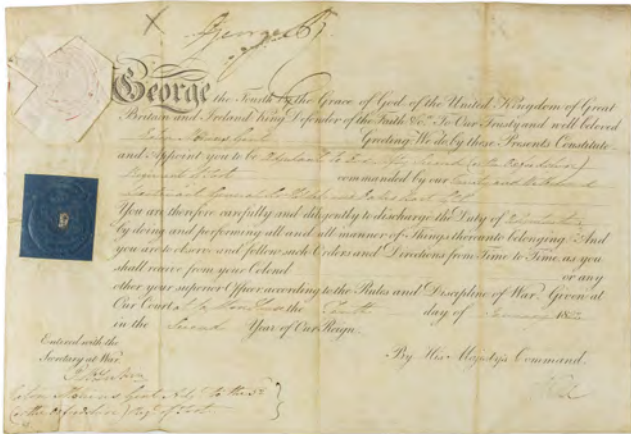 George R.
George the Fourth by the Grace of God of the United Kingdom of Great
Britain and Ireland King Defender of the Faith &c. To Our Trusty and well beloved
Gent. Greeting We do by these Presents Constitute
and Appoint you to be Adjutant to Our Fifty Second (or the Oxfordshire)
Regiment of Foot commanded by our Trusty and Wellbeloved
Lieutenant General
You are therefore carefully and diligently to discharge the Duty of Adjutant
by doing and performing all and all manner of Things thereunto belonging And
you are to observe and follow such Orders and Directions from Time to Time as you
shall receive from your Colonel or any
other your superior Officer according to the Rules and Discipline of War. Given at
Our Court at Carlton House the day of
in the Second Year of Our Reign.
Entered with the
Secretary at War.
By His Majesty's Command.
Gent. Adjt. to the 52d
(or the Oxfordshire) Regt. of Foot.